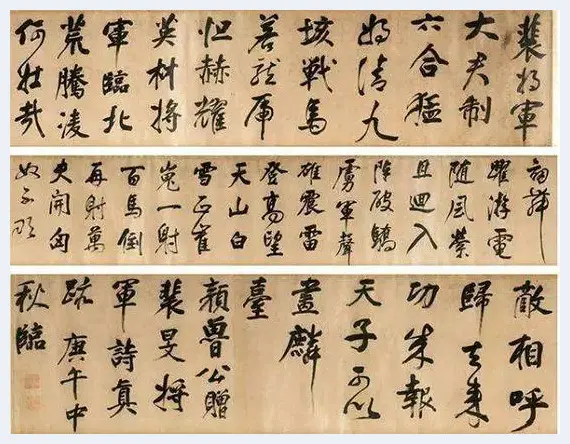 裴将軍
大君制
六合猛
将清九
垓戰馬
若龍虎
怛赫耀
英材将
軍臨北
荒騰凌
何壮哉
舞
躍游電
隨風縈
且迴入
陣破驕
虜軍聲
雄震雷
登高望
天山白
雪正崔
嵬一射
百馬倒
再射萬
夫開匈
奴不敢
敵相呼
歸去来
功成報
天子可以
畫麟
臺
顏魯公贈
裴旻将
軍詩真
跡庚午中
秋臨